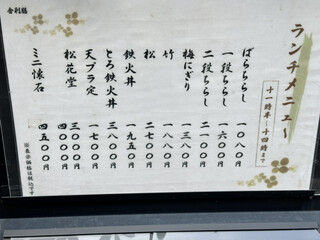 ランチメニュー
十一時半~十四時まで
ばららちらし 一〇八〇円
一段ちらし 一六〇〇円
二段ちらし 二一〇〇円
梅にぎり 一三八〇円
竹 一八八〇円
松 二七〇〇円
鉄火丼 一九五〇円
とろ鉄火丼 三八〇〇円
天プラ定 一七〇〇円
松花堂 三〇〇〇円
四〇〇〇円
ミニ懐石 四五〇〇円
※表示価格は税込です